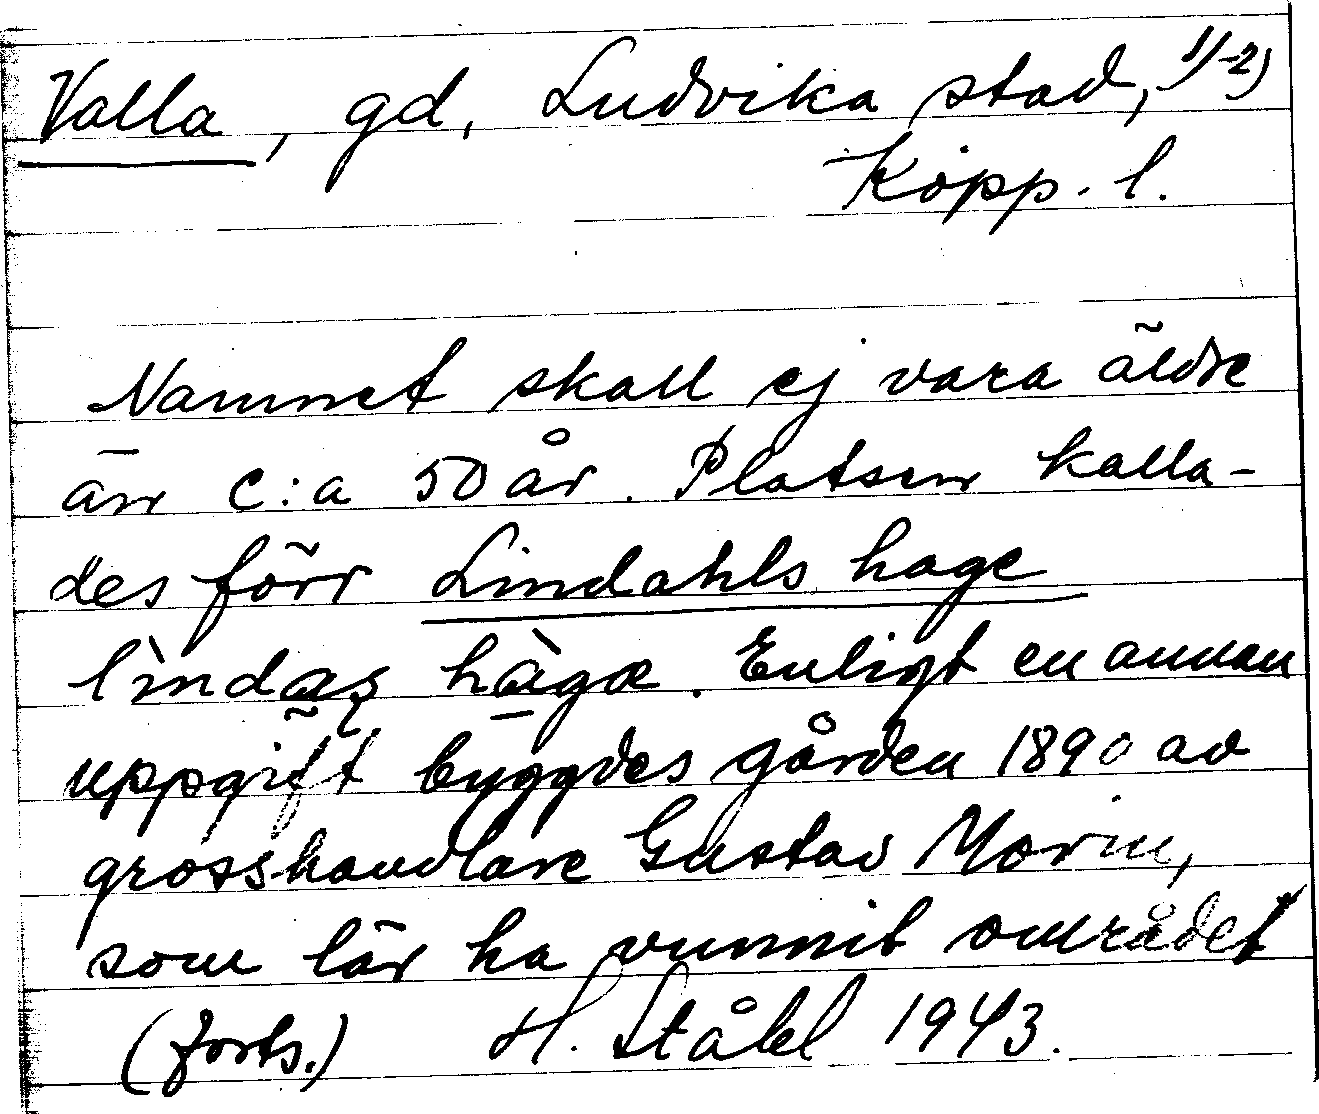 Valla, gd, Ludvika stad, 1/-2)
Kopp. l.
Namnet skall ej vara äldre
än c:a 50 år. Platsen kalla-
des förr Lindahls hage
lìndas hàga. Enligt en annan
uppgift byggdes gården 1890 av
grosshandlare Gustav Morin,
som lär ha vunnit området
(forts.) H. Ståhl 1943.